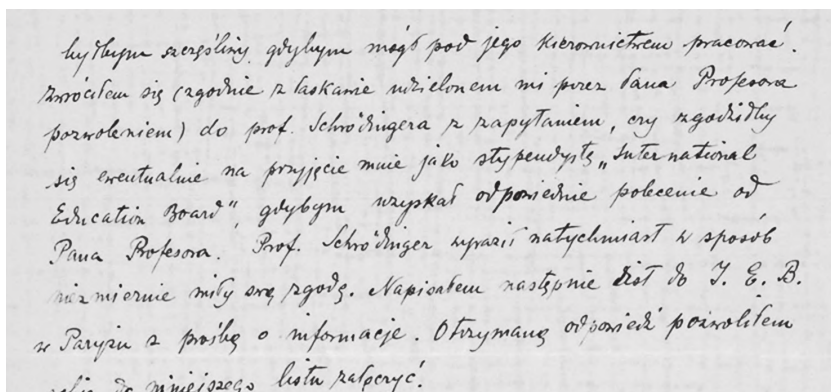 byłbym szczęśliwy, gdybym mógł pod jego kierownictwem pracować.
Zwróciłem się (zgodnie z łaskawie udzielonem mi przez Pana Profesora
pozwoleniem) do prof. Schrödingera z zapytaniem, czy zgodziłby
się ewentualnie na przyjęcie mnie jako stypendystę „International
Education Board", gdybym uzyskał odpowiednie polecenie od
Pana Profesora. Prof. Schrödinger wyraził natychmiast w sposób
niezmiernie miły swą zgodę. Napisałem następnie list do I. E. B.
w Paryżu z prośbą o informacje. Otrzymaną odpowiedź pozwoliłem
sobie do niniejszego listu załączyć.